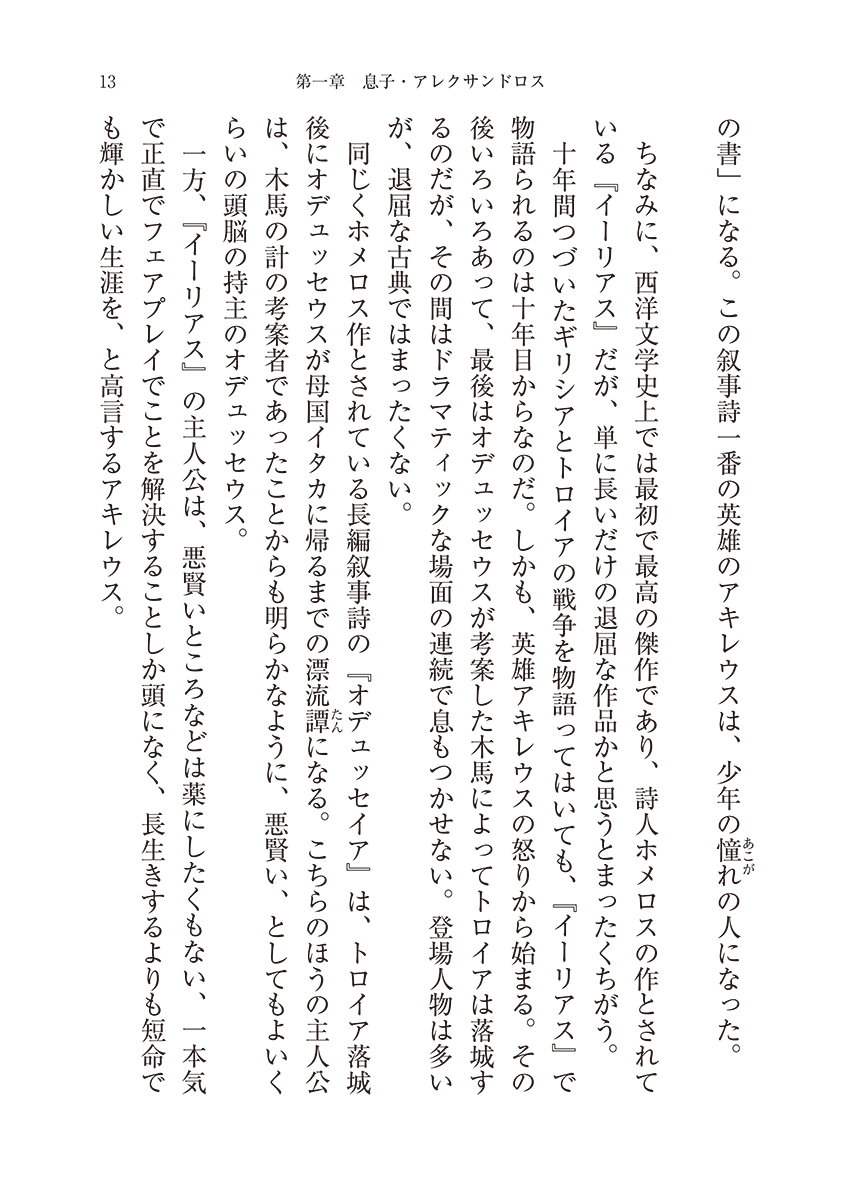 13
第一章　息子・アレクサンドロス
の書」になる。この叙事詩一番の英雄のアキレウスは、少年の憧れの人になった。
あこが
ちなみに、西洋文学史上では最初で最高の傑作であり、詩人ホメロスの作とされて
いる『イーリアス』だが、単に長いだけの退屈な作品かと思うとまったくちがう。
十年間つづいたギリシアとトロイアの戦争を物語ってはいても、『イーリアス』で
物語られるのは十年目からなのだ。しかも、英雄アキレウスの怒りから始まる。その
後いろいろあって、最後はオデュッセウスが考案した木馬によってトロイアは落城す
るのだが、その間はドラマティックな場面の連続で息もつかせない。登場人物は多い
が、退屈な古典ではまったくない。
同じくホメロス作とされている長編叙事詩の『オデュッセイア』は、トロイア落城
後にオデュッセウスが母国イタカに帰るまでの漂流譚になる。こちらのほうの主人公
たん
は、木馬の計の考案者であったことからも明らかなように、悪賢い、としてもよいく
らいの頭脳の持主のオデュッセウス。
一方、『イーリアス』の主人公は、悪賢いところなどは薬にしたくもない、一本気
で正直でフェアプレイでことを解決することしか頭になく、長生きするよりも短命で
も輝かしい生涯を、と高言するアキレウス。